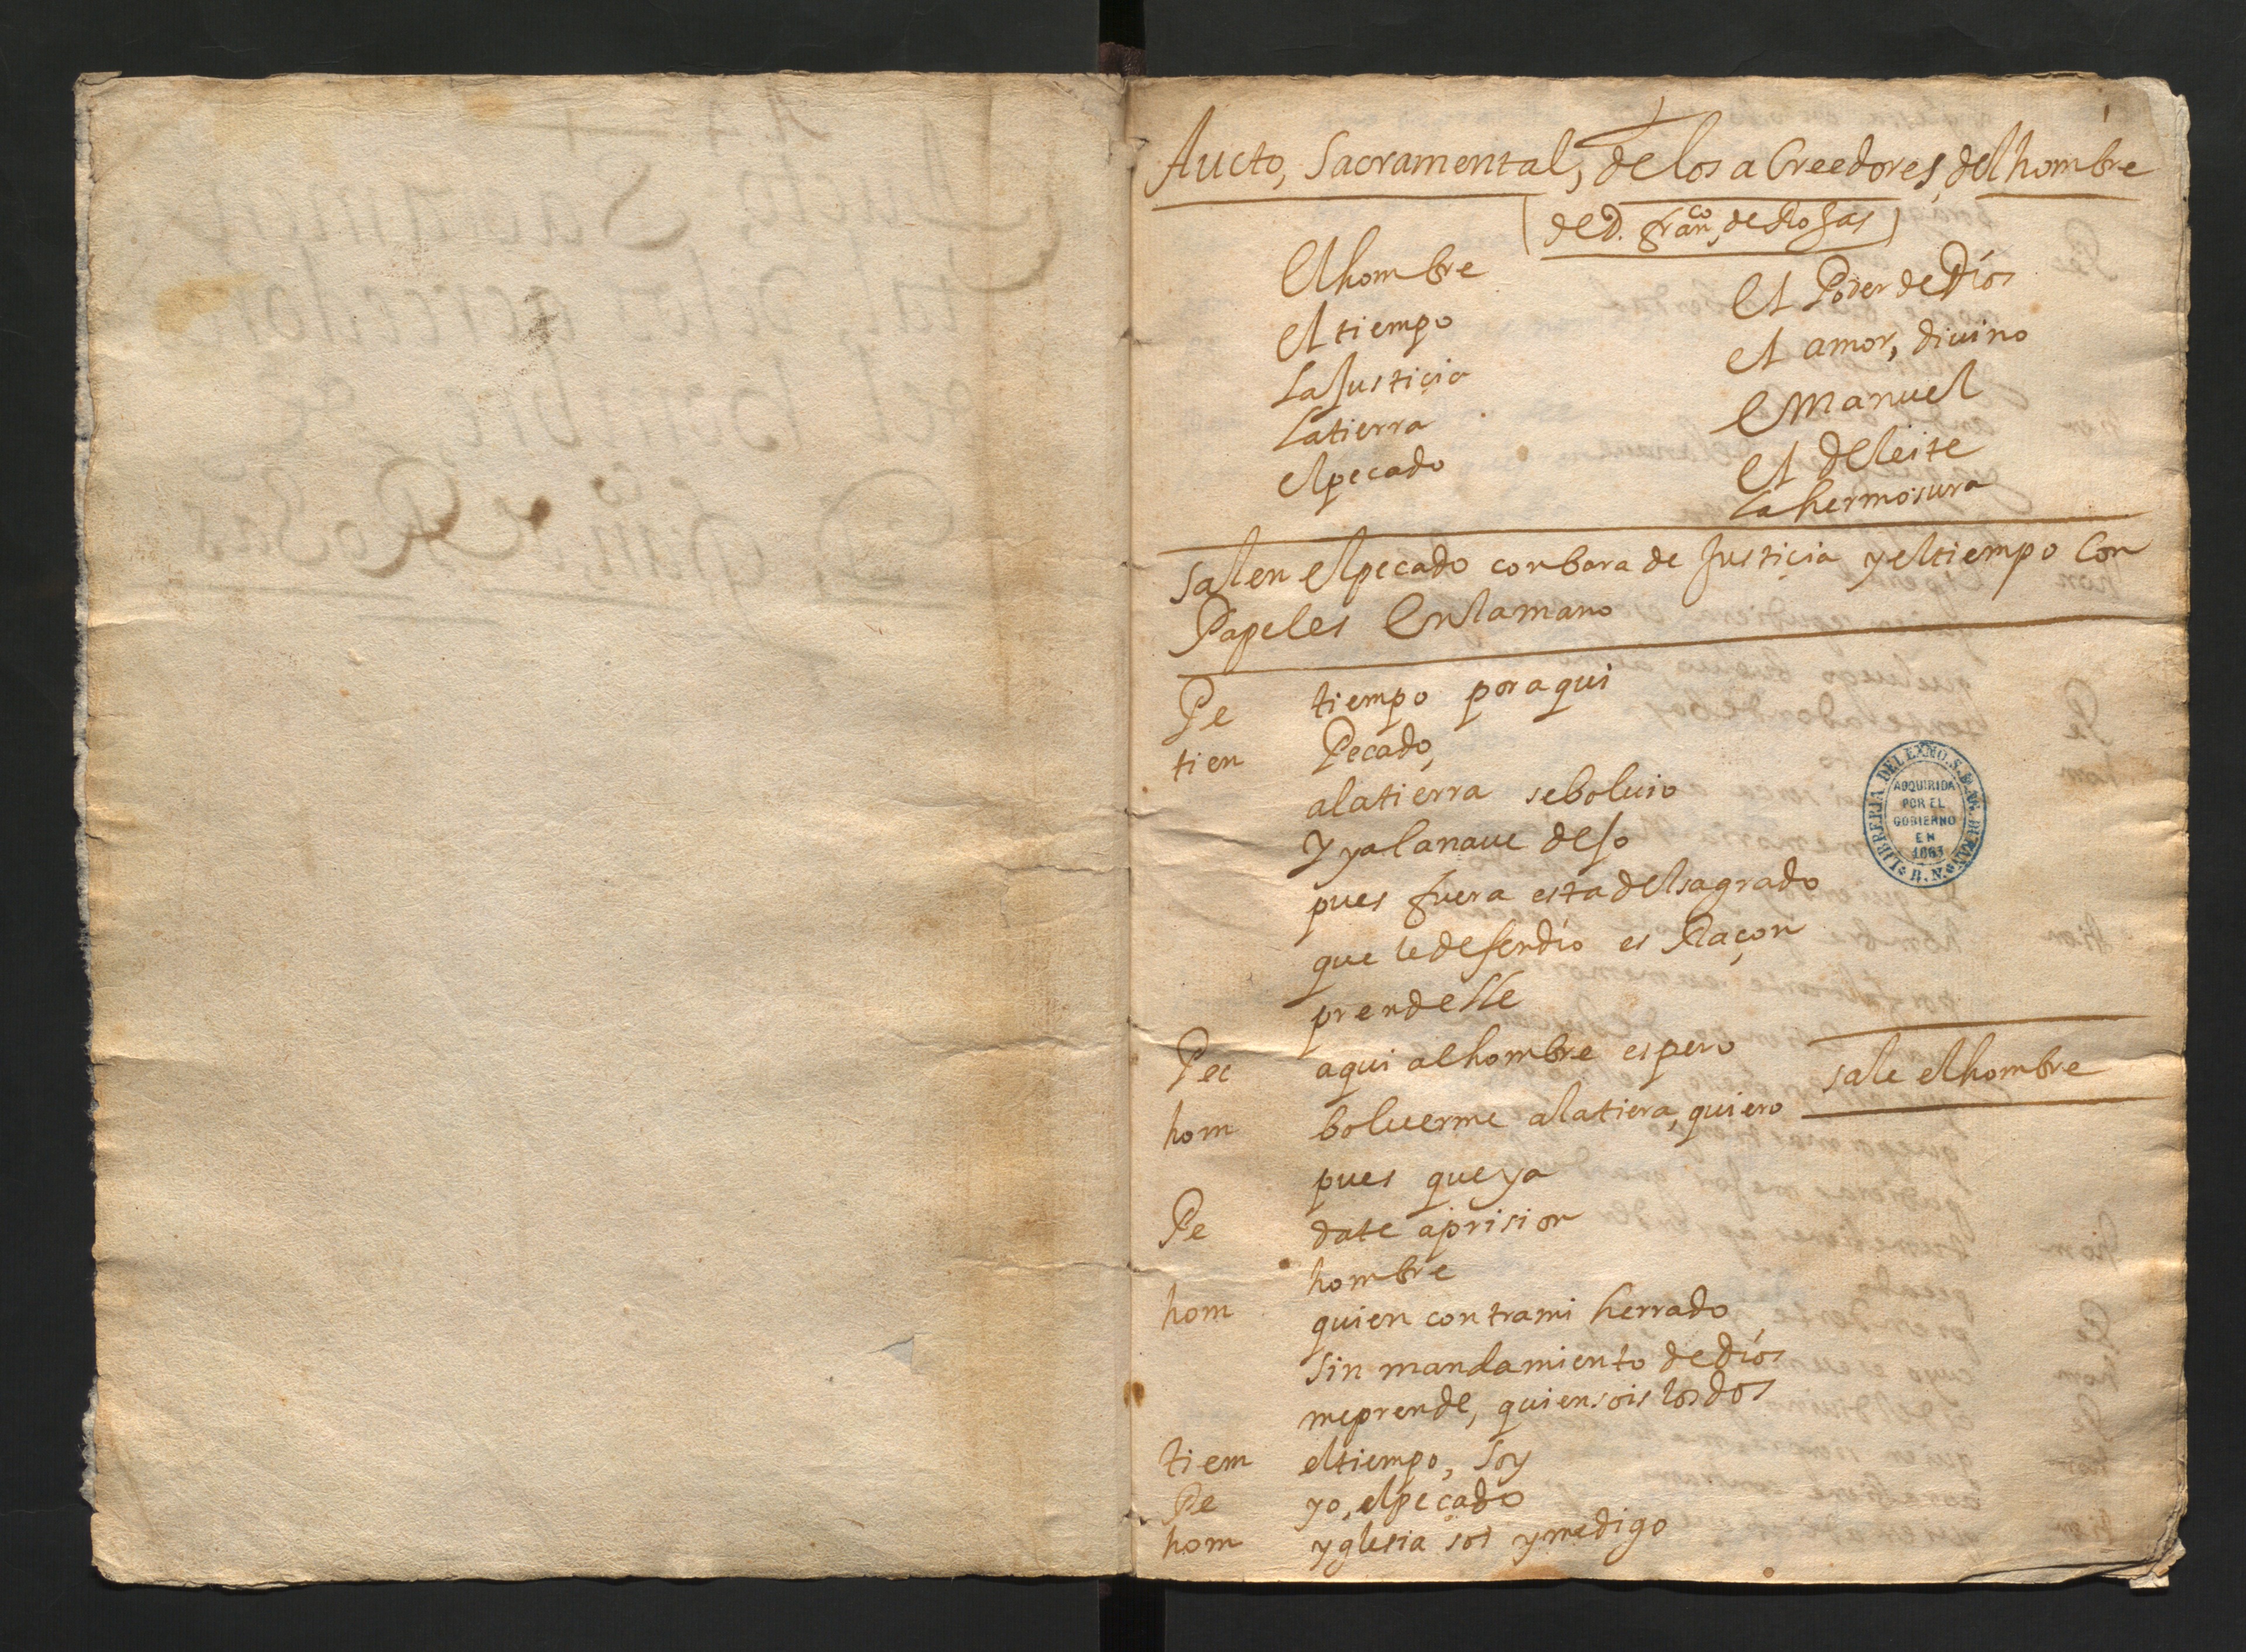 Aucto, Sacramental, de los a Creedores, del hombre
de D. franco, de Rojas
El hombre
el tiempo
La Justiçia
La tierra
el pecado
el Poder de Dios
el amor, diuino
emanuel
el deleite
la hermosura
salen el pecado con bara de Justiçia y el tiempo Con
Papeles en la mano
Pe tiempo por aqui
tien Pecado,
a la tierra se boluio
y ya la naue dejo
pues fuera esta del sagrado
que le defendio es Raçon
prendelle
Pec aqui al hombre espero
sale el hombre
hom boluerme a la tiera, quiero
pues que ya
Pe date a prision
hombre
hom quien contra mi herrado
sin mandamiento de dios
me prende, quien sois los dos
tiem el tiempo, soy
Pe yo, el peçado
hom yglesia soi y me digo
LIBRERIA DEL EXMO. S. D. A. DURAN
B.N.
ADQUIRIDA
POR EL
GOBIERNO
EN
1863